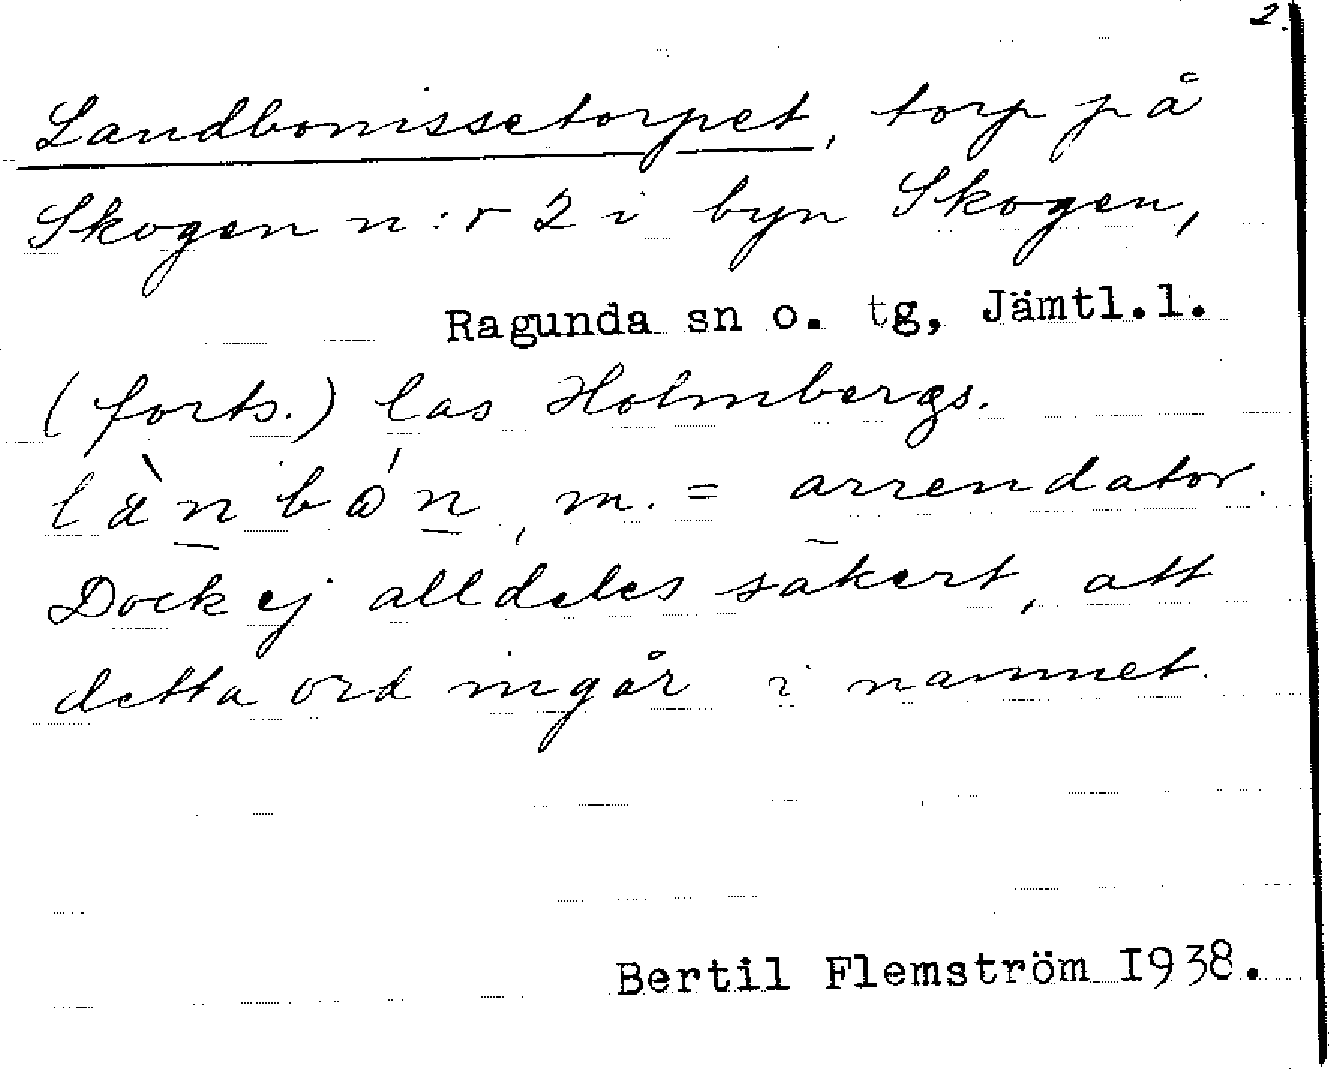 2.
Landbonissetorpet, torp på
Skogen n:r 2 i byn Skogen,
Ragunda sn o. tg, Jämtl.l.
(forts.) las Holmbergs.
lànbón, m. = arrendator.
Dock ej alldeles säkert, att
detta ord ingår i namnet.
Bertil Flemström 1938.